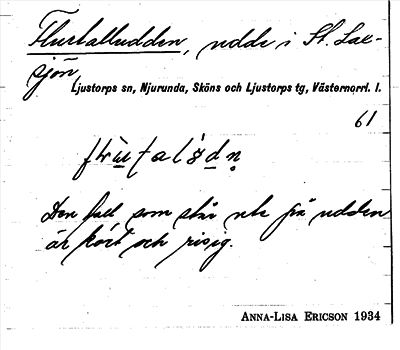 Flurtalludden, udde i St. Lax-
sjön,
Ljustorps sn, Njurunda, Sköns och Ljustorps tg, Västernorrl. l.
61
Den tall som står ute på udden
är kort och risig.
ANNA-LISA ERICSON 1934